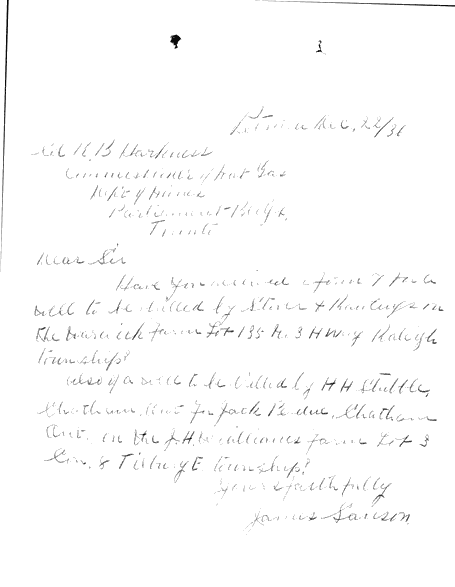 Dec, 22/36
Col R. B Harkness
Commissioner of Nat Gas
Dept of Mines
Parliament Bldgs,
Toronto
Dear Sir
Have you received a form 7 for a
well to be drilled by & in
the farm Lot 135 No. 3 H Way Raleigh
township?
also if a well to be drilled by H H Stubble,
Chatham, Ont for Jack Perdue, Chatham
Ont. on the J. H. Williams farm Lot 3
Con. 8 Tilbury E township?
Yours faithfully
James